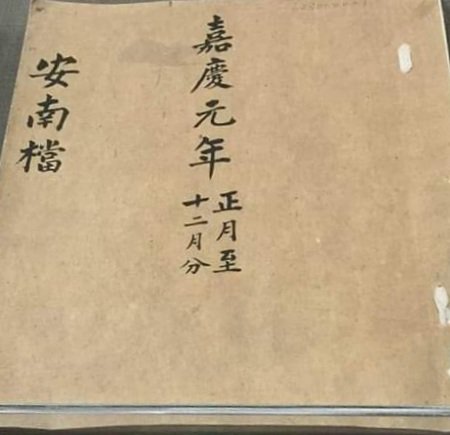 嘉慶元年
正月至
十二月分
安南檔